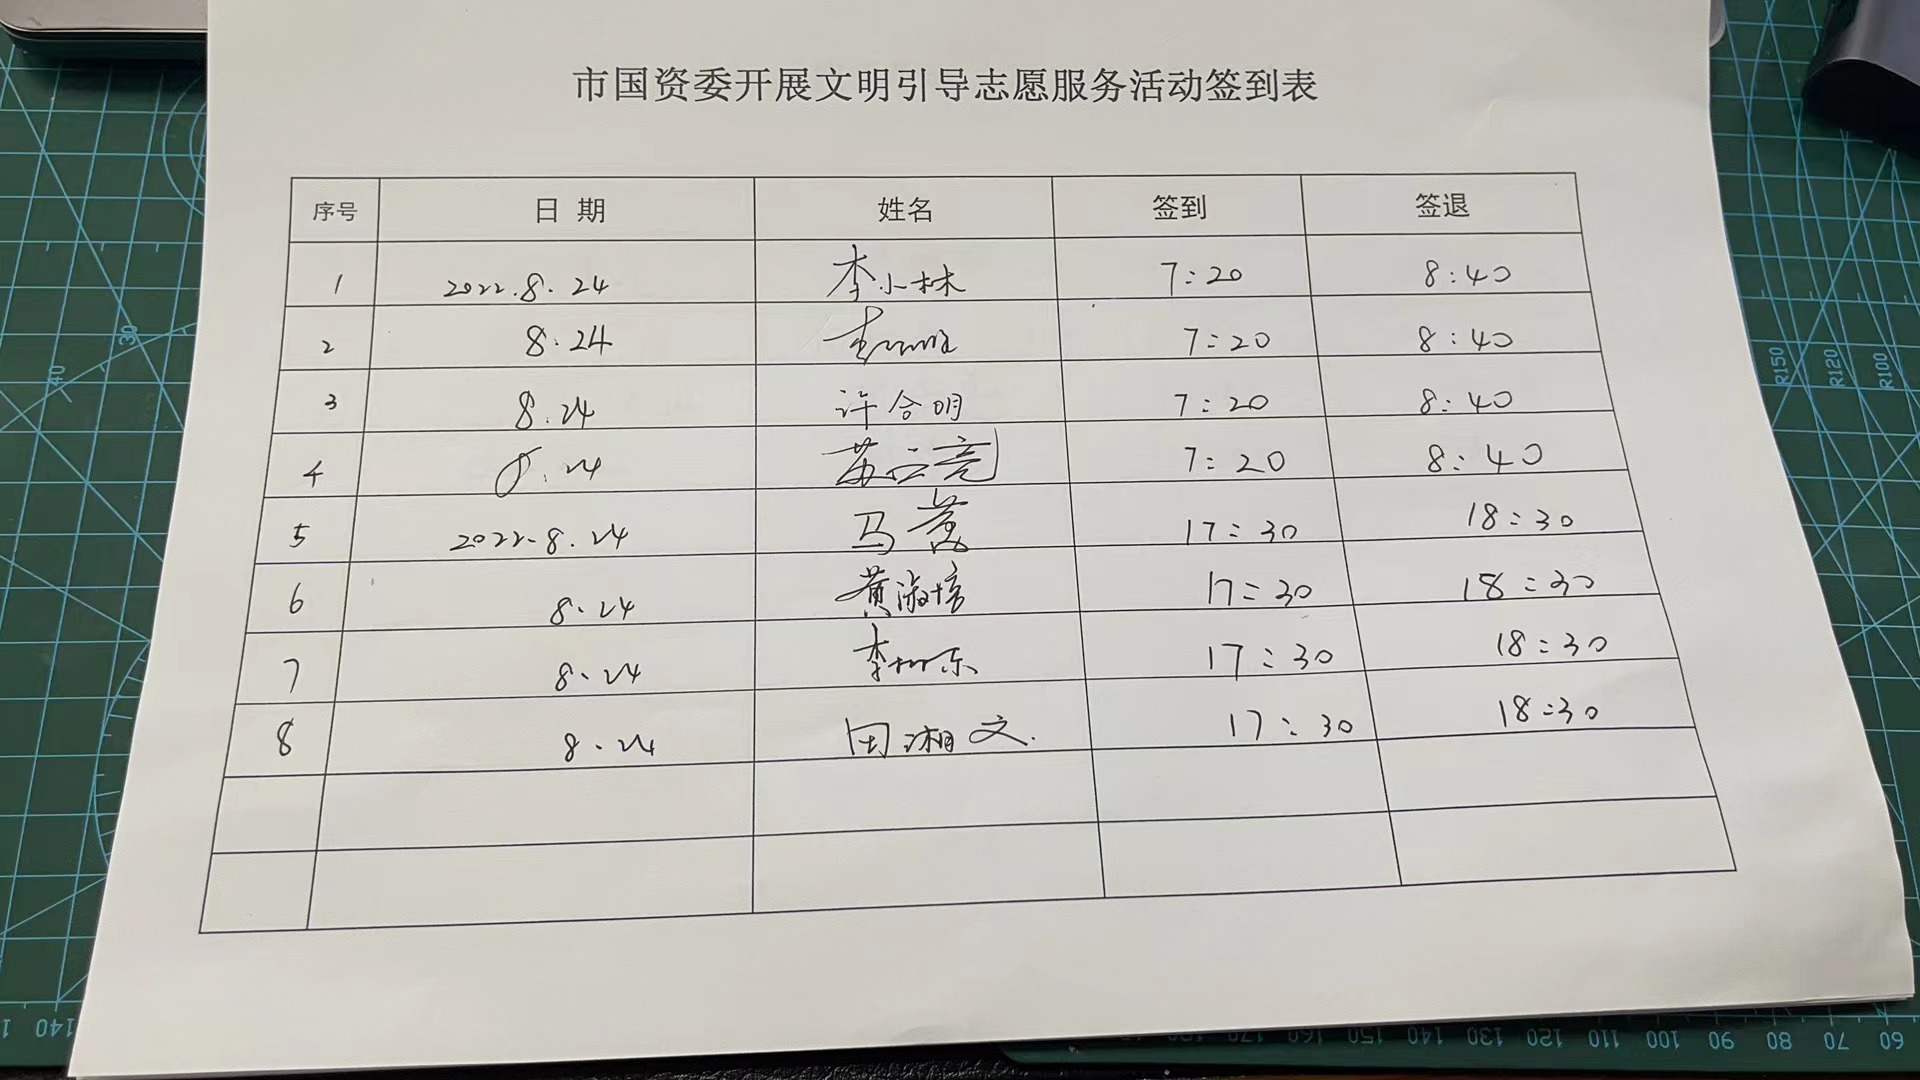 市国资委开展文明引导志愿服务活动签到表
序号 日期 姓名 签到 签退
1 2022.8.24 李小林 7:20 8:40
2 8.24 7:20 8:40
3 8.24 许合明 7:20 8:40
4 8.24 苏云亮 7:20 8:40
5 2022.8.24 马 17:30 18:30
6 8.24 黄淑培 17:30 18:30
7 8.24 李 东 17:30 18:30
8 8.24 田湘文. 17:30 18:30
40
30
R150 R120 R100
140 60 70 80 90 100 110 120 130 140 150 160 170